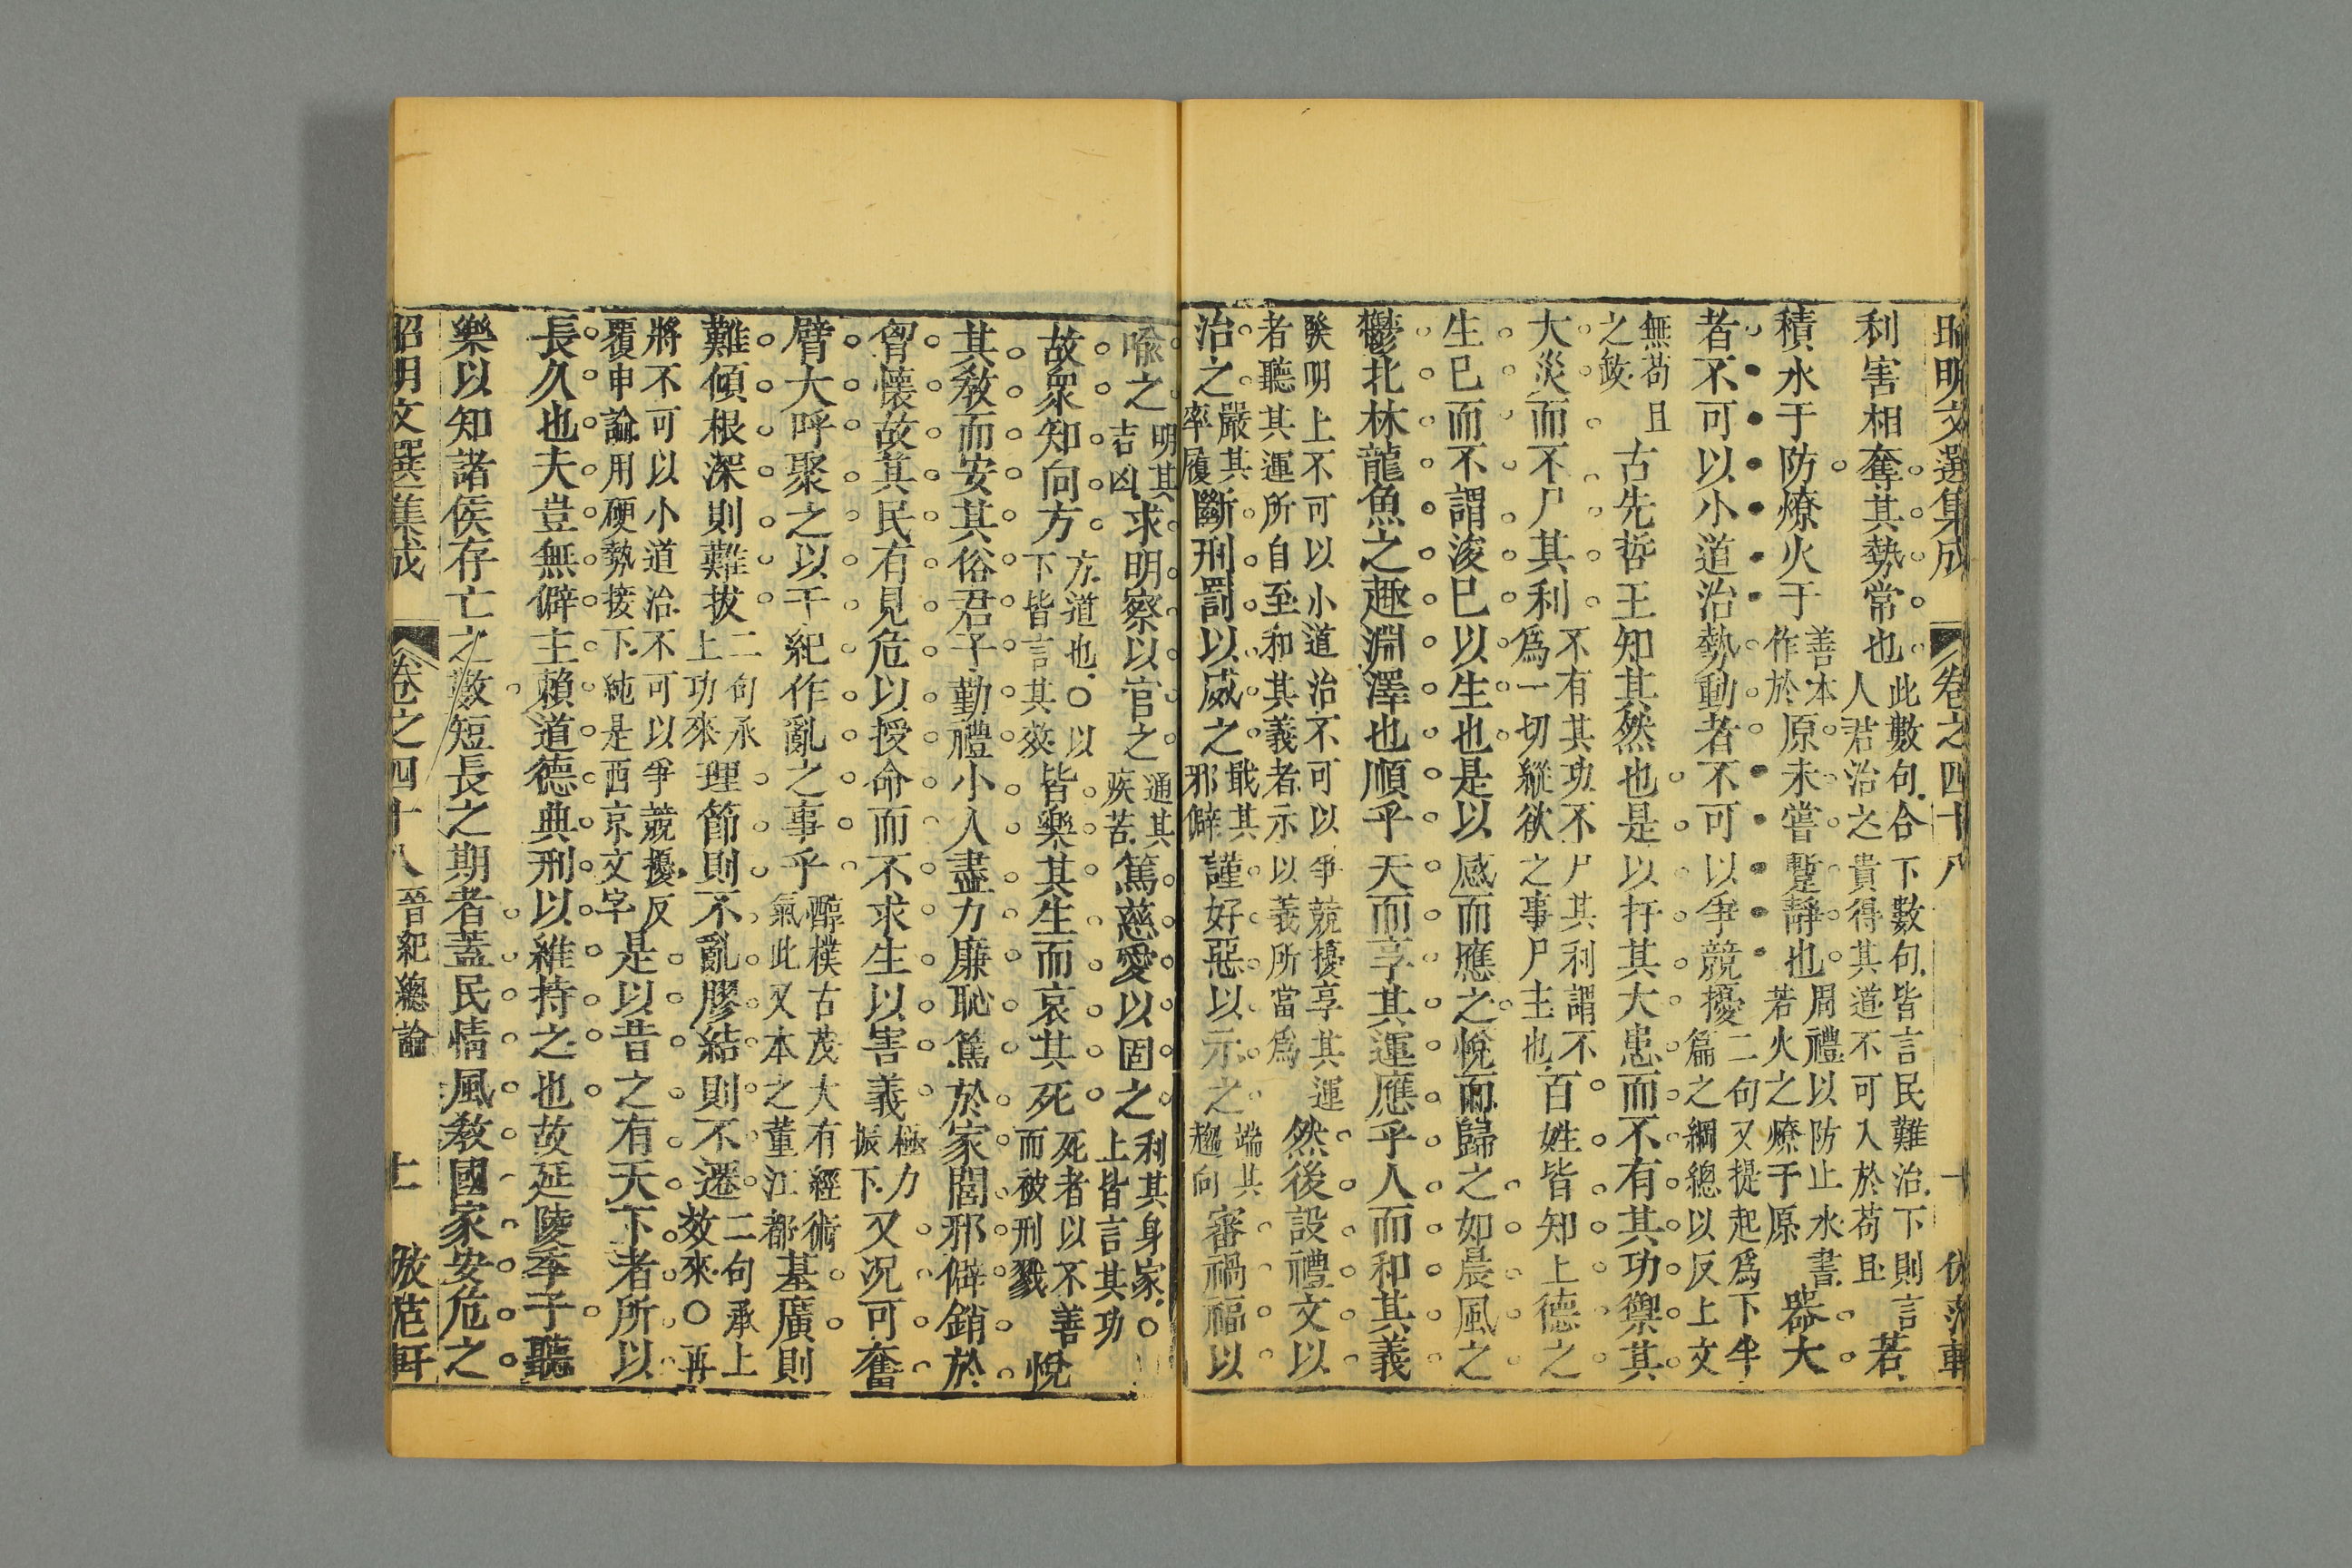 昭明文選集成 卷之四十八 十 倣范軒
利害相奪其勢常也此數句合下數句皆言民難治下則言人君治之貴得其道不可入於苟且若
積水于防燎火于原未嘗蹔靜也周禮以防止水書若火之燎于原善本作於器大
者不可以小道治勢動者不可以爭競擾二句又提起為下半篇之綱總以反上文
無苟且之敝古先哲王知其然也是以扞其大患而不有其功禦其
大災而不尸其利不有其功不尸其利謂不為一切縱欲之事尸主也百姓皆知上德之
生已而不謂浚已以生也是以感而應之悅而歸之如晨風之
鬱北林龍魚之趣淵澤也順乎天而享其運應乎人而和其義
暌明上不可以小道治不可以爭競擾享其運者聽其運所自至和其義者示以義所當為然後設禮文以
治之嚴其率履斷刑罰以威之戢其邪僻謹好惡以示之端其趨向審禍福以
喻之明其吉凶求明察以官之通其疾苦篤慈愛以固之利其身家○上皆言其功
故衆知向方方道也○以下皆言其效皆樂其生而哀其死死者以不善而被刑戮悅
其敎而安其俗君子勤禮小人盡力廉恥篤於家閭邪僻銷於
胷懷故其民有見危以授命而不求生以害義極力振下又況可奮
臂大呼聚之以干紀作亂之事乎醇樸古茂大有經術氣此又本之董江都基廣則
難傾根深則難拔二句承上功來理節則不亂膠結則不遷二句承上效來○再
將不可以小道治不可以爭競擾反覆申論用硬勢接下純是西京文字是以昔之有天下者所以
長久也夫豈無僻主賴道德典刑以維持之也故延陵季子聽
樂以知諸侯存亡之數短長之期者蓋民情風敎國家安危之
昭明文選集成 卷之四十八晉紀總論 十一 倣范軒